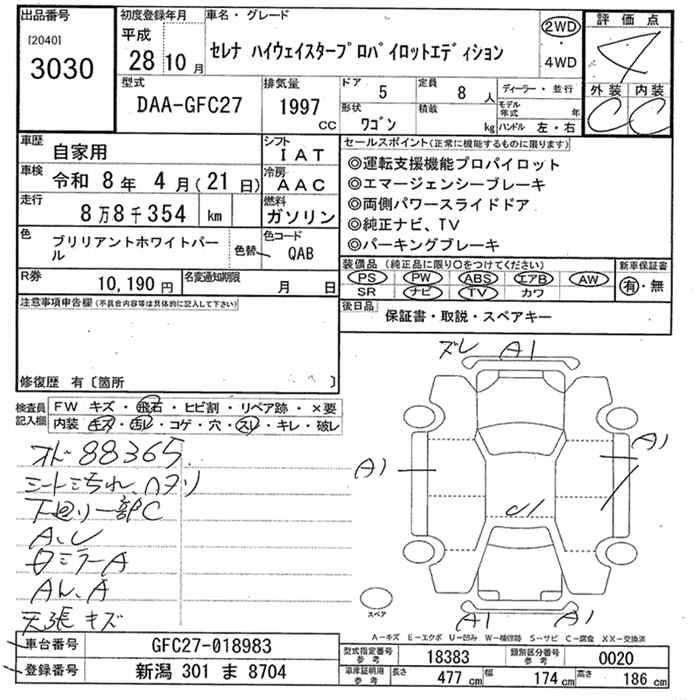 出品番号
[2040]
3030
初度登録年月
平成
28年10月
車名・グレード
セレナ ハイウェイスタープロパイロットエディション
2WD
・
4WD
評価点
4
外装 内装
C C
型式
DAA-GFC27
排気量
1997 CC
ドア 5
定員 8 人
形状 ワゴン
積載 kg
ディーラー・並行
モデル年式 年
ハンドル 左・右
車歴 自家用
シフト IAT
車検 令和 8年 4月(21日)
冷房 AAC
走行 8万8千354 km
燃料 ガソリン
色 ブリリアントホワイトパール
色替
色コード QAB
R券 10,190円
名変通知期限 月 日
セールスポイント(正常に機能するものに限ります)
◎運転支援機能プロパイロット
◎エマージェンシーブレーキ
◎両側パワースライドドア
◎純正ナビ、TV
◎パーキングブレーキ
装備品(純正品に限り○をつけてください)
PS PW ABS エアB AW
SR ナビ TV カワ
新車保証書
有・無
後日品
保証書・取説・スペアキー
注意事項申告欄(不具合内容等は具体的に記入して下さい)
修復歴 有〔箇所 〕
検査員記入欄
FW キズ・飛石・ヒビ割・リペア跡・×要
内装・キズ・汚レ・コゲ・穴・スレ・キレ・破レ
オド 88365
シートミ汚れ、ヘタリ
下廻リ一部C
A、U
ミラーA
A
天張キズ
ズレ A1
A1
A1
U1
A1 A1
スペア
A-キズ E-エクボ U-凹み W-補修跡 S-サビ C-腐食 XX-交換済
車台番号 GFC27-018983
登録番号 新潟 301 ま 8704
型式指定番号 参考 18383
類別区分番号 参考 0020
車庫証明用 参考 長さ 477 cm 幅 174 cm 高さ 186 cm